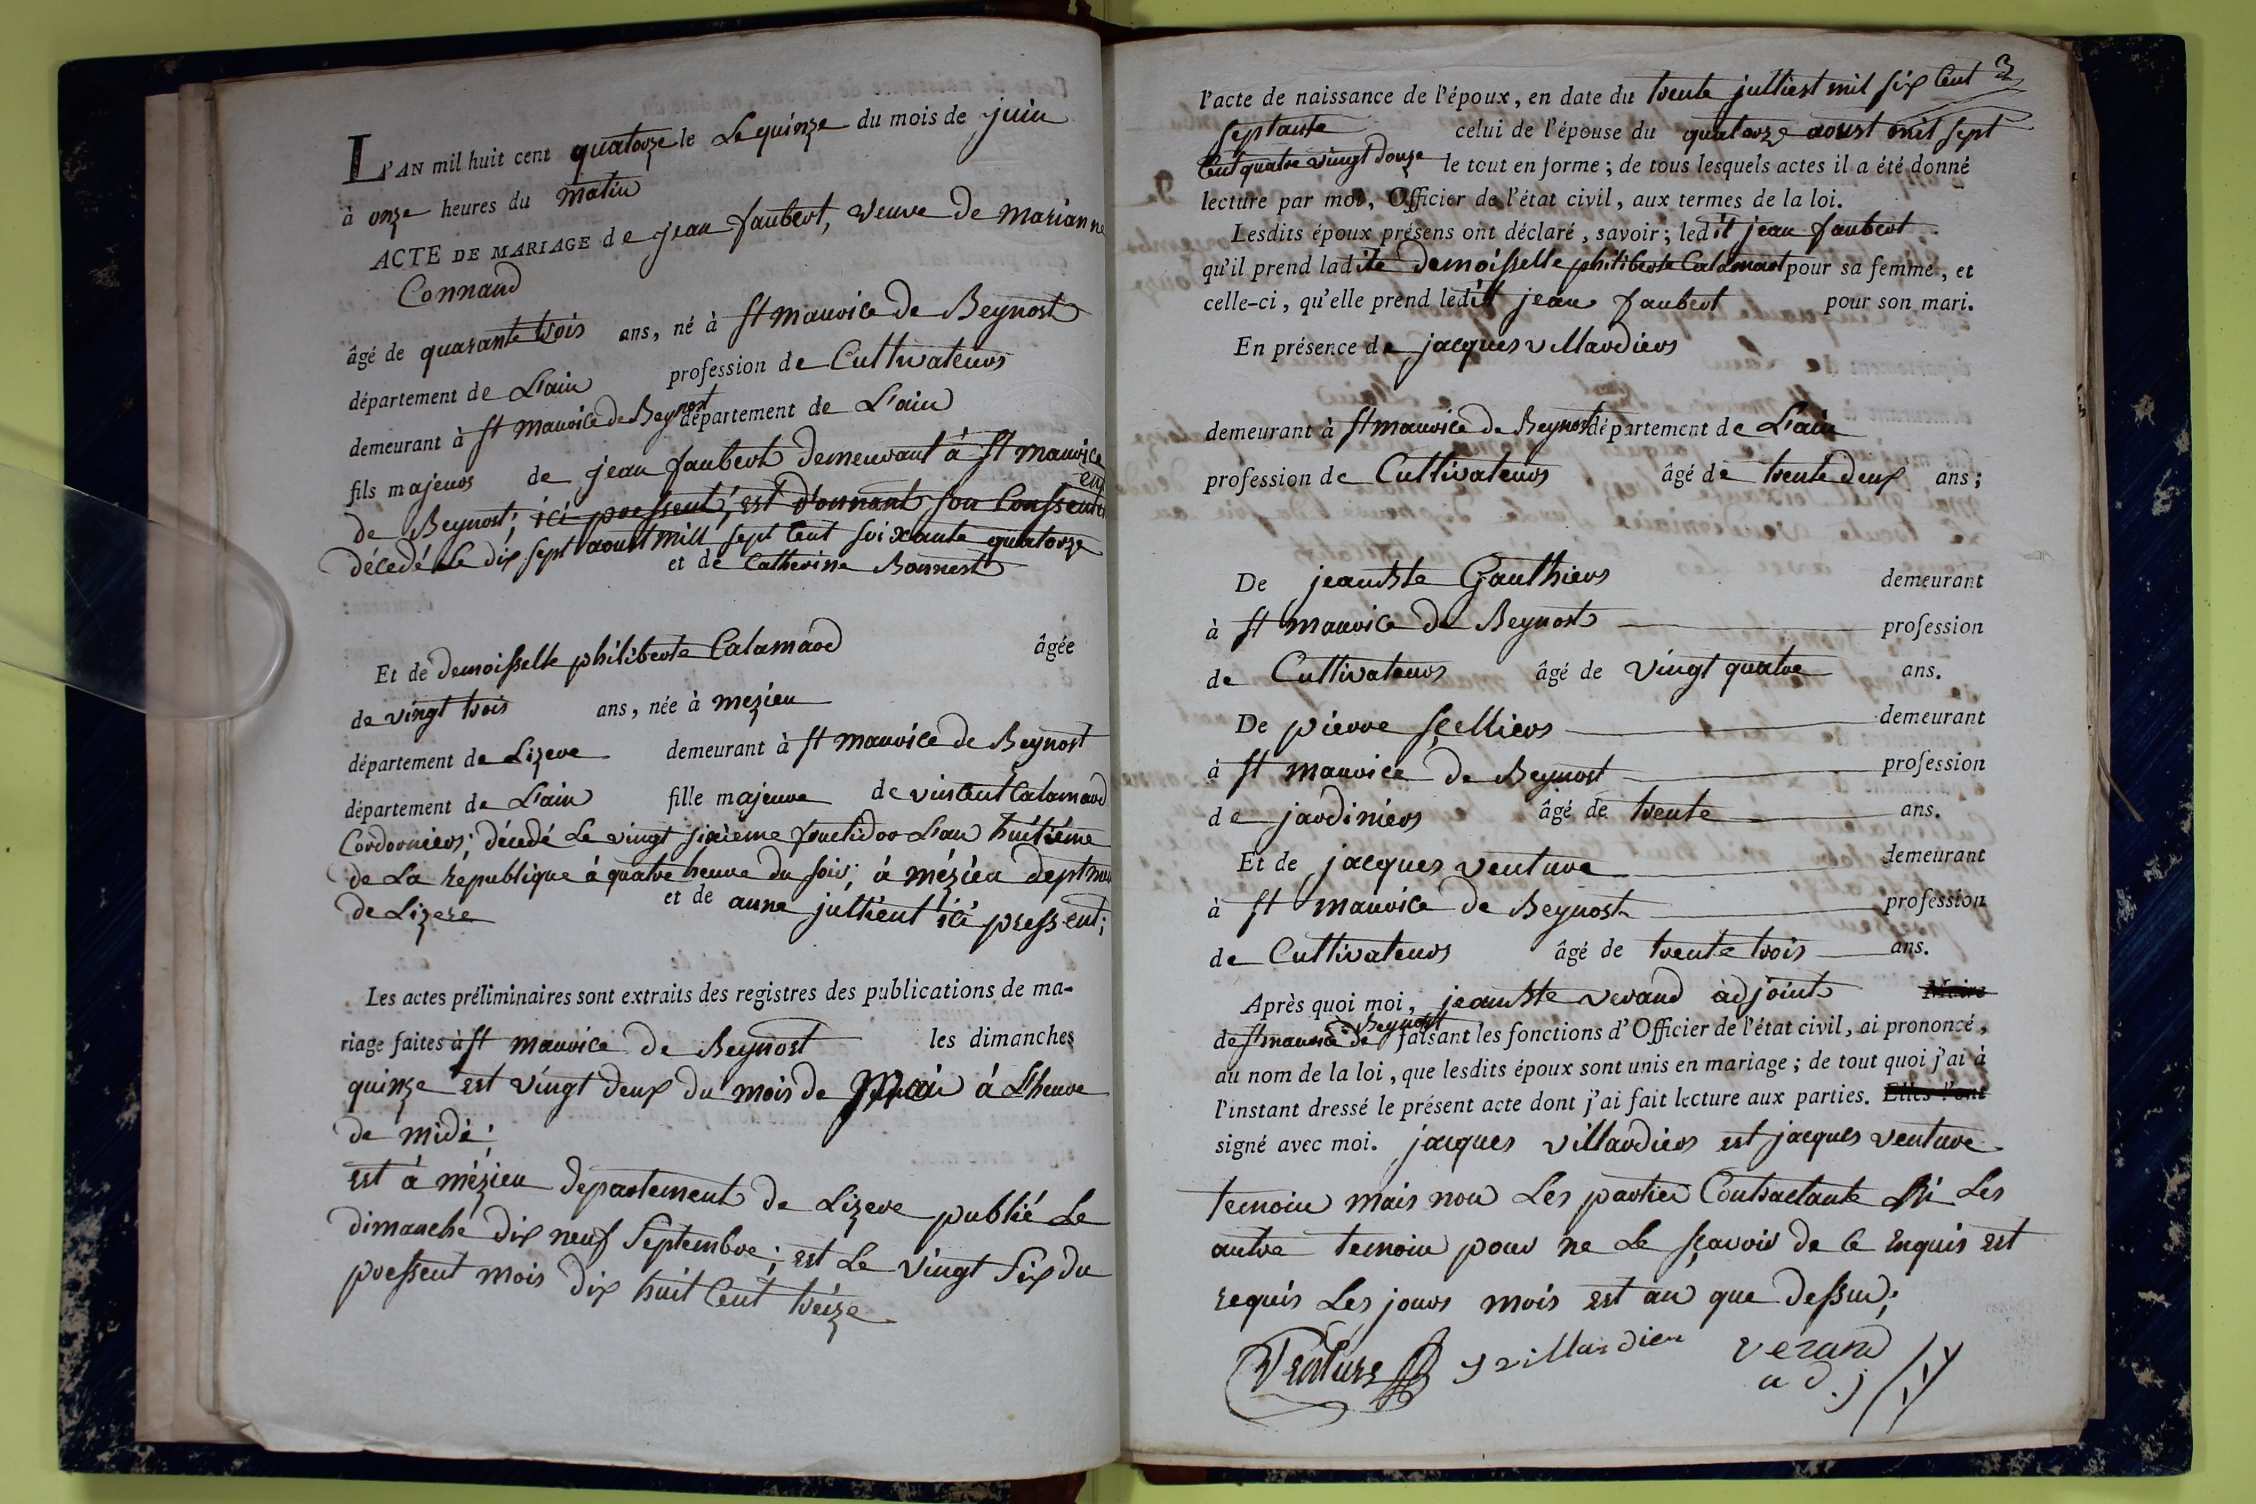 L'AN mil huit cent quatorze le Le quinze du mois de juin
à onze heures du matin
ACTE DE MARIAGE de jean faubert, veuve de marianne
Connand
âgé de quarante trois ans, né à St maurice de Beynost
département de L'ain profession de Cultivateurs
demeurant à St mauricedeBeynost département de L'ain
fils majeurs de jean faubert demeurant à St maurice
de Beynost; ici pressent, est d'onnant son Conssentem
ent
décedé Le dix sept aoust mill sept Cent soixante quatorze
et de Catherine Bonnest
Et de demoisselle philiberte Calamard âgée
de vingt trois ans, née à mezieu
département de Lizere demeurant à St maurice de Beynost
département de L'ain fille majeure de vincent Calamard
Cordorniers; décedé Le vingt sixieme fructidor L'an huitième
de La republique à quatre heure du soir; à mézieu deptmen
de Lizere et de anne jullient ici pressent;
Les actes préliminaires sont extraits des registres des publications de ma-
riage faites à St maurice de Beynost les dimanches
quinze est vingt deux du mois de Mai à L'heure
de midi;
est à mézieu departement de Lizere publié Le
dimanche dix neuf Septembre; est Le vingt Six du
pressent mois dix huit Cent treize
3
l'acte de naissance de l'époux, en date du trente julliest mil six Cent
septante celui de l'épouse du quatorze aoust mil sept
Cent quatre vingt douze le tout en forme; de tous lesquels actes il a été donné
lecture par moi, Officier de l'état civil, aux termes de la loi.
Lesdits époux présens ont déclaré, savoir; ledit jean faubert
qu'il prend ladite demoisselle philiberte Calamard pour sa femme, et
celle-ci, qu'elle prend ledit jean faubert pour son mari.
En présence de jacques villardiers
demeurant à St maurice de Beynost département de L'ain
profession de Cultivateurs âgé de trente deux ans;
De jeanbte Gauthiers demeurant
à St maurice de Beynost profession
de Cultivateurs âgé de vingt quatre ans.
De pierre sçelliers demeurant
à St maurice de Beynost profession
de jardiniers âgé de trente ans.
Et de jacques venture demeurant
à St maurice de Beynost profession
de Cultivateurs âgé de trente trois ans.
Après quoi moi, jeanbte verand adjoint Maire
de St maurice de Beynost faisant les fonctions d'Officier de l'état civil, ai prononcé,
au nom de la loi, que lesdits époux sont unis en mariage; de tout quoi j'ai à
l'instant dressé le présent acte dont j'ai fait lecture aux parties. Elles l'ont
signé avec moi. jacques villardiers est jacques venture
temoin mais non Les partiei Contractante Ni Les
autre temoin pour ne Le sçavoir de Ce enquis est
requis Les jours mois est an que dessus;
Venture J villardier verand
adj